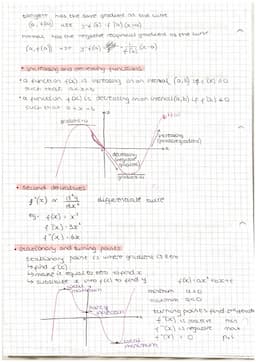 tangent has the same gradient as the curve
(a, f(a)) use y-f(a) = f'(a)(x-a)
normal has the negative reciprocal gradient as the curve
(a, f(a)) use y-f(a) = (x-a)
• increasing and decreasing functions
• a function f(x) is increasing on an interval (a,b) if f'(x) ≥0
such that a<x<b
• a function f(x) is decreasing on an interval (a,b) if f'(x) ≤0
such that a<x<b
gradient=0
increasing
(positive gradient)
decreasing
(negative
gradient)
gradient=0
• second derivatives
f''(x) or d²y/dx² differentiate twice
eg. f(x) = x³
f'(x) = 3x²
f''(x) = 6x
• stationary and turning points
stationary point is where gradient is zero
↳ find f'(x)
↳ make it equal to zero → find x
↳ substitute x into f(x) to find y
local
maximum
f(x)=ax²+bx+c
minimum a>0
maximum a<0
local
minimum
turning points find
f''(x) is positive min
f''(x) is negative max
f''(x) = 0
local
minimum